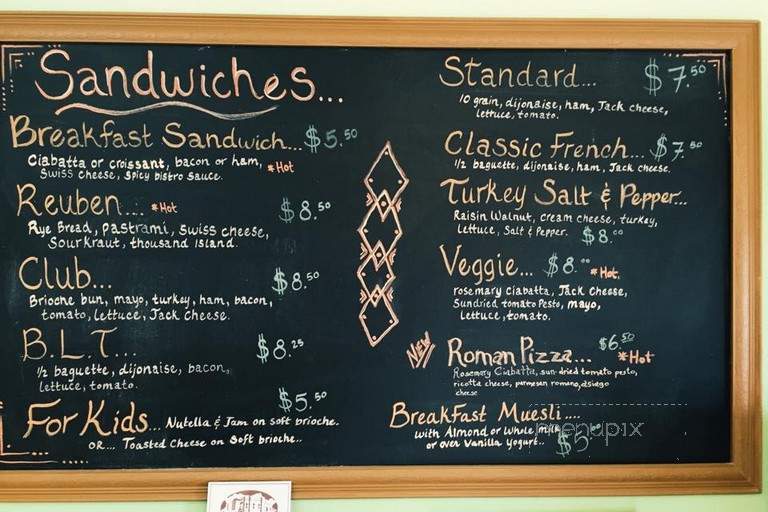 Sandwiches...
Breakfast Sandwich... $5.50
Ciabatta or croissant, bacon or ham, *Hot
Swiss cheese, Spicy bistro sauce.
Reuben.... *Hot $8.50
Rye Bread, pastrami, swiss cheese,
Sourkraut, thousand island.
Club... $8.50
Brioche bun, mayo, turkey, ham, bacon,
tomato, lettuce, Jack cheese.
B.L.T... $8.25
1/2 baguette, dijonaise, bacon,
lettuce, tomato.
$5.50
For Kids... Nutella & Jam on soft brioche.
OR... Toasted Cheese on Soft brioche..
Standard... $7.50
10 grain, dijonaise, ham, Jack cheese,
lettuce, tomato.
Classic French... $7.50
1/2 baguette, dijonaise, ham, Jack cheese.
Turkey Salt & Pepper...
Raisin Walnut, cream cheese, turkey,
lettuce, Salt & Pepper. $8.00
Veggie... $8.00 *Hot.
rosemary ciabatta, Jack Cheese,
Sundried tomato Pesto, mayo,
lettuce, tomato.
NEW Roman Pizza... $6.50 *Hot
Rosemary Ciabatta, sun-dried tomato pesto,
ricotta cheese, parmesan romano, asiago
cheese
Breakfast Muesli....
with Almond or whole milk
or over Vanilla Yogurt.. $5
menupix